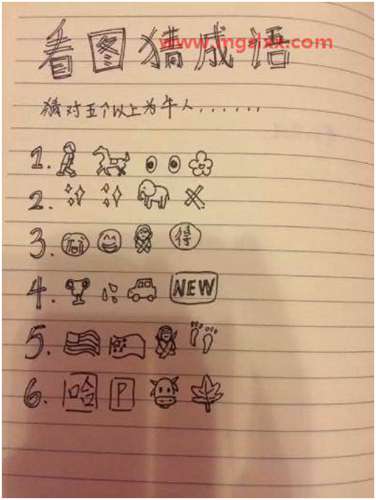 看图猜成语
www.mgslxx.com
猜对五个以上为牛人......
1.
2.
3. 得
4. NEW
5.
6. 哈 P